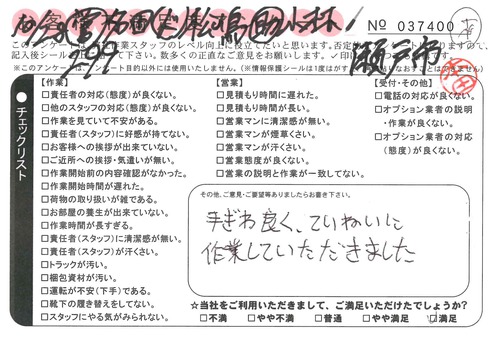 No 037400
このアンケートは、
スタッフのレベル向上に役立てたいと思います。
記入後シール
数多くの正直なご意見をお願いします。
瀬戸市
チェックリスト
【作業】
□責任者の対応(態度)が良くない。
□他のスタッフの対応(態度)が良くない。
□作業を見ていて不安がある。
□責任者(スタッフ)に好感が持てない。
□お客様への挨拶が出来ていない。
□ご近所への挨拶・気遣いが無い。
□作業開始前の内容確認がなかった。
□作業開始時間が遅れた。
□荷物の取り扱いが雑である。
□お部屋の養生が出来ていない。
□作業時間が長すぎる。
□責任者(スタッフ)に清潔感が無い。
□責任者(スタッフ)が汗くさい。
□トラックが汚い。
□梱包資材が汚い。
□運転が不安(下手)である。
□靴下の履き替えをしてない。
□スタッフにやる気がみられない。
【営業】
□見積もり時間に遅れた。
□見積もり時間が長い。
□営業マンに清潔感が無い。
□営業マンが煙草くさい。
□営業マンが汗くさい。
□営業態度が良くない。
□営業の説明と作業が一致してない。
【受付・その他】
□電話の対応が良くない。
□オプション業者の説明
・作業が良くない。
□オプション業者の対応
(態度)が良くない。
その他、ご意見・ご要望等ありましたらお書き下さい。
手ぎわ良く、ていねいに
作業していただきました
☆当社をご利用いただきまして、ご満足いただけたでしょうか?
□不満 □やや不満 □普通 □やや満足 ☑満足